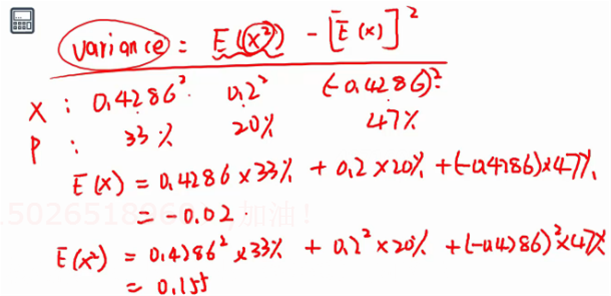 variance = E(x²) - [E(x)]²
X : 0.4286² 0.2² (-0.4286)²
P : 33% 20% 47%
E(x) = 0.4286 x 33% + 0.2 x 20% + (-0.4286) x 47%
= -0.02.
加油!
E(x²) = 0.4286² x 33% + 0.2² x 20% + (-0.4286)² x 47%
= 0.155